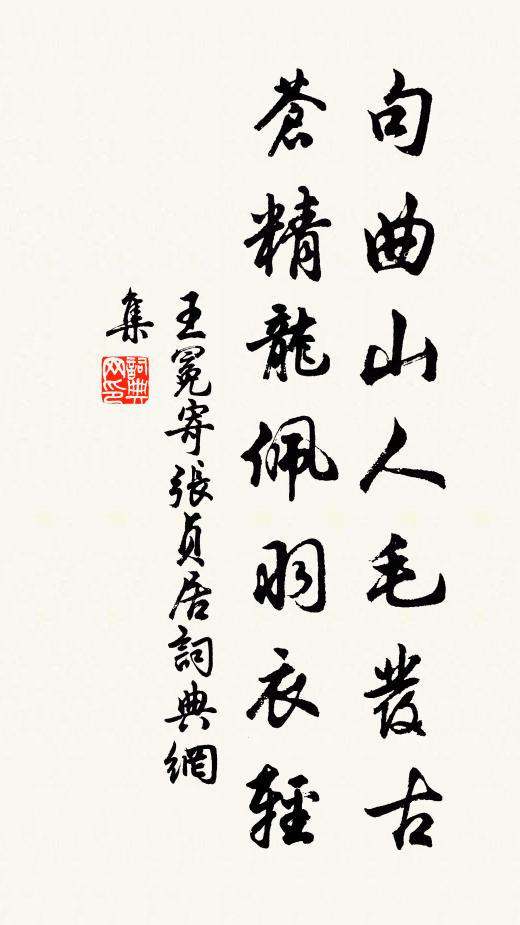 句曲山人毛發古
蒼精龍佩羽衣輕
王冕寄張貞居詞典網
集
詞典
网印